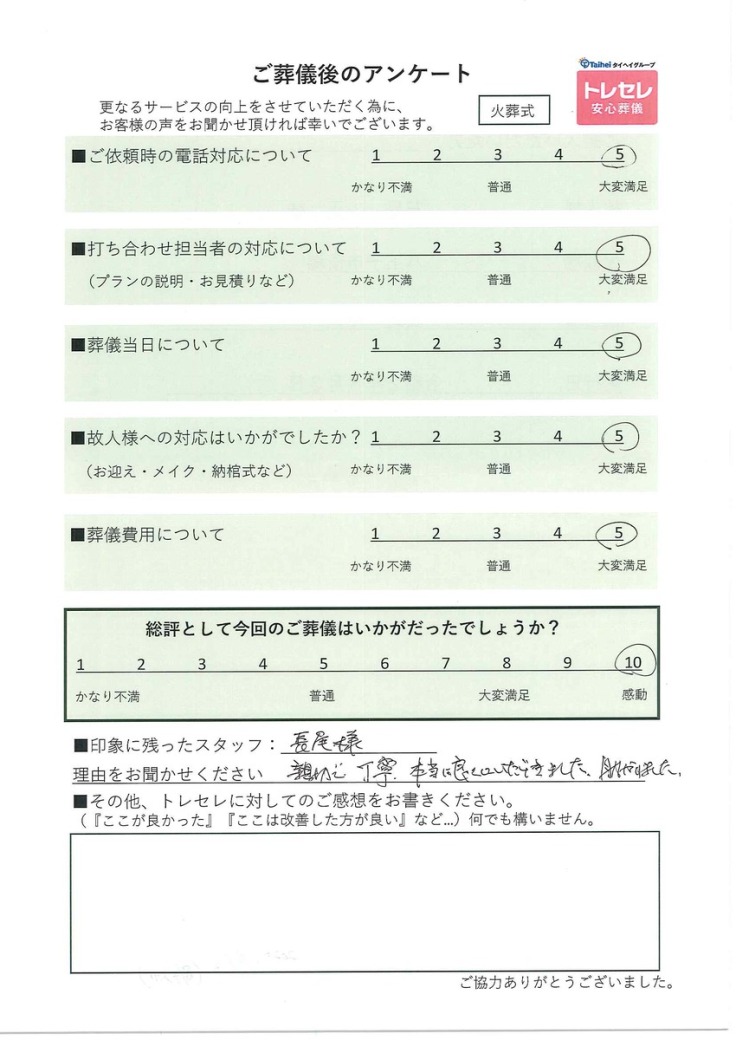 ご葬儀後のアンケート
Taihei タイヘイグループ
トレセレ
安心葬儀
更なるサービスの向上をさせていただく為に、
お客様の声をお聞かせ頂ければ幸いでございます。
火葬式
■ご依頼時の電話対応について 1 2 3 4 5
かなり不満 普通 大変満足
■打ち合わせ担当者の対応について 1 2 3 4 5
（プランの説明・お見積りなど） かなり不満 普通 大変満足
■葬儀当日について 1 2 3 4 5
かなり不満 普通 大変満足
■故人様への対応はいかがでしたか？ 1 2 3 4 5
（お迎え・メイク・納棺式など） かなり不満 普通 大変満足
■葬儀費用について 1 2 3 4 5
かなり不満 普通 大変満足
総評として今回のご葬儀はいかがだったでしょうか？
1 2 3 4 5 6 7 8 9 10
かなり不満 普通 大変満足 感動
■印象に残ったスタッフ： 長尾様
理由をお聞かせください 親切で丁寧. 本当に良くしていただきました、助かりました。
■その他、トレセレに対してのご感想をお書きください。
（『ここが良かった』『ここは改善した方が良い』など…）何でも構いません。
ご協力ありがとうございました。